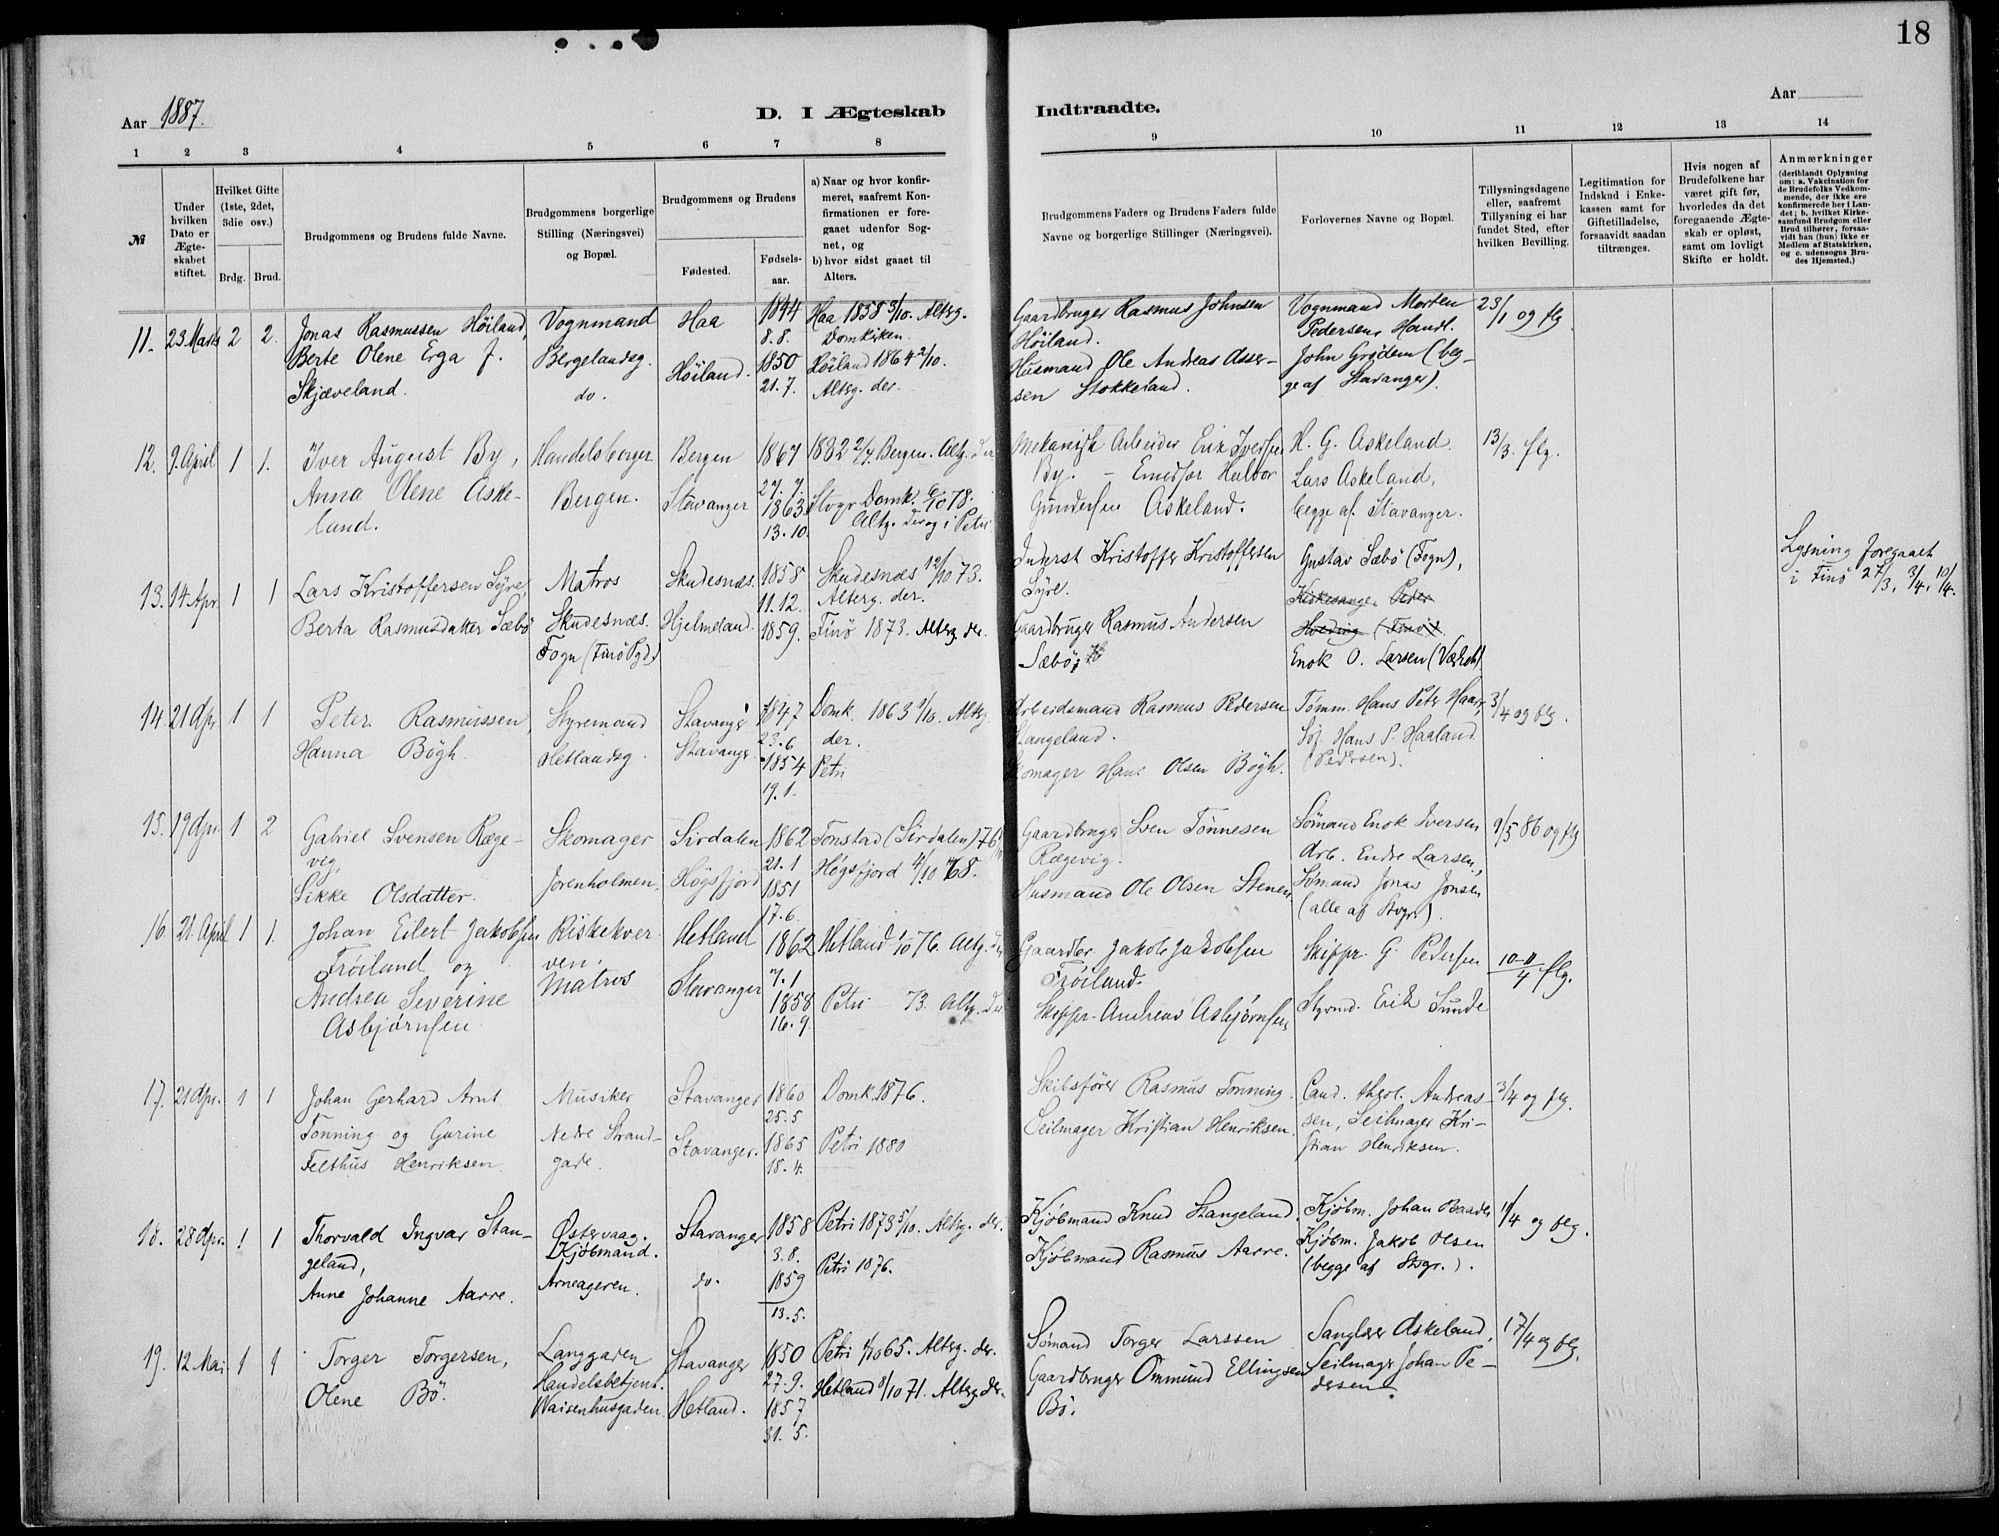 18
Aar 1887.
D. I Ægteskab
Indtraadte.
Aar
1 2 3 4 5 6 7 8 9 10 11 12 13 14
№
Under hvilken Dato er Ægteskabet stiftet.
Hvilket Gifte (1ste, 2det, 3die osv.)
Brdg. Brud.
Brudgommens og Brudens fulde Navne.
Brudgommens borgerlige Stilling (Næringsvei) og Bopæl.
Brudgommens og Brudens
Fødested.
Fødselsaar.
a) Naar og hvor konfirmeret, saafremt Konfirmationen er foregaaet udenfor Sognet, og
b) hvor sidst gaaet til Alters.
Brudgommens Faders og Brudens Faders fulde Navne og borgerlige Stillinger (Næringsvei).
Forlovernes Navne og Bopæl.
Tillysningsdagene eller, saafremt Tillysning ei har fundet Sted, efter hvilken Bevilling.
Legitimation for Indskud i Enkekassen samt for Giftetilladelse, forsaavidt saadan tiltrænges.
Hvis nogen af Brudefolkene har været gift før, hvorledes da det foregaaende Ægteskab er opløst, samt om lovligt Skifte er holdt.
Anmærkninger (deriblandt Oplysning om: a. Vakcination for de Brudefolks Vedkommende, der ikke ere konfirmerede her i Landet; b. hvilket Kirkesamfund Brudgom eller Brud tilhører, forsaavidt han (hun) ikke er Medlem af Statskirken, og c. udensogns Brudes Hjemsted.)
11. 23 Marts 2 2.
Jonas Rasmussen Höiland,
Berte Olene Erga f.
Skjæveland.
Vognmand
Bergelandsg.
do.
Haa
Höiland.
1844
8.8.
1850
21.7.
Haa 1858 3/10. Altrg.
Domkirken.
Höiland 1864 2/10.
Altrg. der.
Gaardbruger Rasmus Johnsen
Höiland.
Husmand Ole Andreas Asser-
sen Stokkeland.
Vognmand Morten
Pedersen, Handl.
John Grödem (beg-
ge af Stavanger).
23/1 og flg.
12. 9. April 1 1.
Iver August By,
Anna Olene Aske-
land.
Handelsborger
Bergen.
Bergen
Stavanger
1867
27.7.
1863
13.10.
1882 2/4. Bergen. Altg. der
Stvgr Domk. 6/10 78.
Altg. der og i Petri
Mekanisk Arbeider Erik Iversen
By. – Halvor
Gundersen Askeland.
H. G. Askeland.
Lars Askeland,
begge af Stavanger.
13/3. flg.
13. 14 Apr. 1 1
Lars Kristoffersen Syre,
Berta Rasmusdatter Sæbö
Matros
Skudesnæs.
Fogn (Finö Pgd.)
Skudesnæs.
Hjelmeland.
1858
11.12.
1859.
Skudesnæs 12/10 73.
Alterg. der.
Finö 1873. Altrg. der.
Inderst Kristoffer Kristoffersen
Syre.
Gaardbruger Rasmus Andersen
Sæbö,
Gustav Sæbö (Fogn),
Kirkesanger Peder
(Finö).
Enok O. Larsen
Lysning foregaaet
i Finö 27/3, 3/4, 10/4.
14. 21 Apr. 1 1
Peter Rasmussen,
Hanna Bögh.
Styrmand
Hetlandsg.
Stavanger
Stavanger
1847
23.6
1854
19.1.
Domk. 1863 4/10. Altrg.
der.
Petri
Arbeidsmand Rasmus Pedersen
Stangeland.
Skomager Hans Olsen Bögh.
Tømm. Hans Peter Haag,
Søf. Hans P. Haaland
(Pedersen).
3/4 og flg.
15. 19 Apr. 1 2
Gabriel Svensen Ræge-
vig,
Sikke Olsdatter.
Skomager
Jorenholmen.
Sirdalen
Högsfjord
1862
21.1
1851
17.6.
Tonstad (Sirdalen) 76
Högsfjord 4/10 68.
Gaardbruger Sven Tönnesen
Rægevig.
Husmand Ole Olsen Stenen.
Sømand Enok Iversen
Arb. Endre Larsen,
Sømand Jonas Jonsen
(alle af Stvgr.).
9/5 86 og flg
16. 21. April 1 1.
Johan Eilert Jakobsen
Tröiland og
Andrea Severine
Asbjørnsen.
Riskekver
ven.
Matros
Hetland
Stavanger
1862
7.1
1858
16.9.
Hetland 1/10 76. Altg. der
Petri 73. Altg. der
Gaardbr. Jakob Jakobsen
Tröiland.
Skippr. Andreas Asbjørnsen
Skippr. G. Pedersen
Styrmd. Erik Sunde
10-11/4 flg.
17. 21 Apr. 1 1
Johan Gerhard Arnt
Tonning og Gurine
Felthus Henriksen.
Musiker
Nedre Strand-
gade.
Stavanger
Stavanger.
1860
25.5
1865
18.4.
Domk. 1876.
Petri 1880
Skibsfører Rasmus Tonning.
Seilmager Kristian Henriksen.
Cand. theol. Andreas-
sen, Seilmager Kri-
stian Henriksen.
3/4 og flg.
18. 28 Apr. 1 1
Thorvald Ingvar Stan-
geland,
Anne Johanne Aarre.
Østervaag.
Kjöbmand.
Arneageren.
Stavanger
do.
1858
3.8.
1859
13.5.
Petri 1873 5/10. Altrg. der.
Petri 1876.
Kjöbmand Knud Stangeland.
Kjöbmand Rasmus Aarre.
Kjöbm. Johan Baader
Kjöbm. Jakob Olsen
(begge af Stvgr.).
11/4 og flg.
19. 12 Mai. 1 1
Torger Torgersen,
Olene Bö.
Langgaden
Handelsbetjent.
Waisenhusgaden
Stavanger
Hetland.
1850
27.9.
1857
31.5.
Petri 1/10 65. Altrg. der.
Hetland 8/10 71. Altrg. der.
Sømand Torger Larssen
Gaardbruger Ommund Ellingsen
Bö.
Sanglærer Askeland,
Seilmager Johan Pe-
dersen.
17/4 og flg.